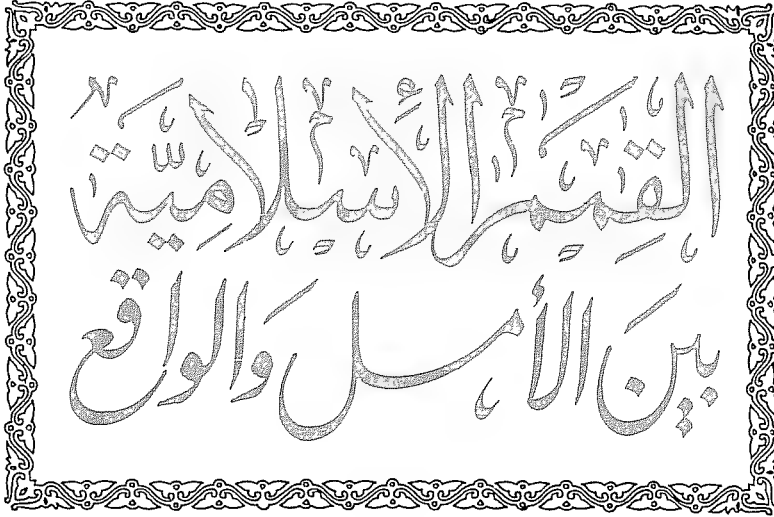 القيم الإسلامية
بين الأمل والواقع